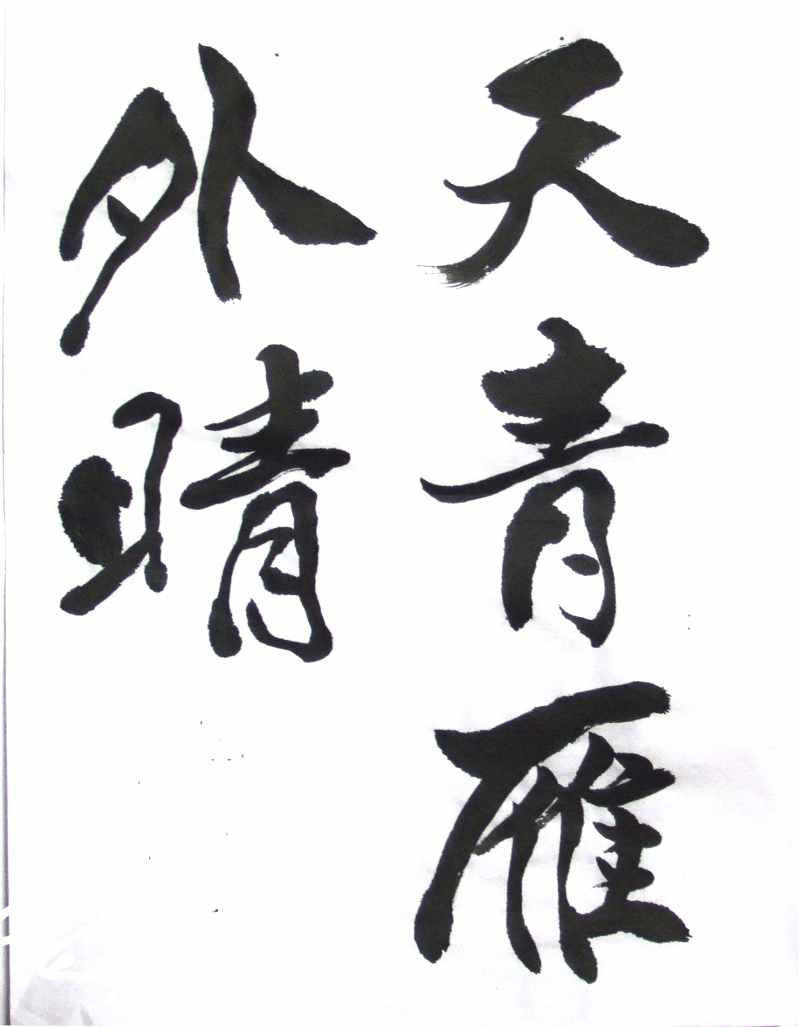 天青雁
外晴